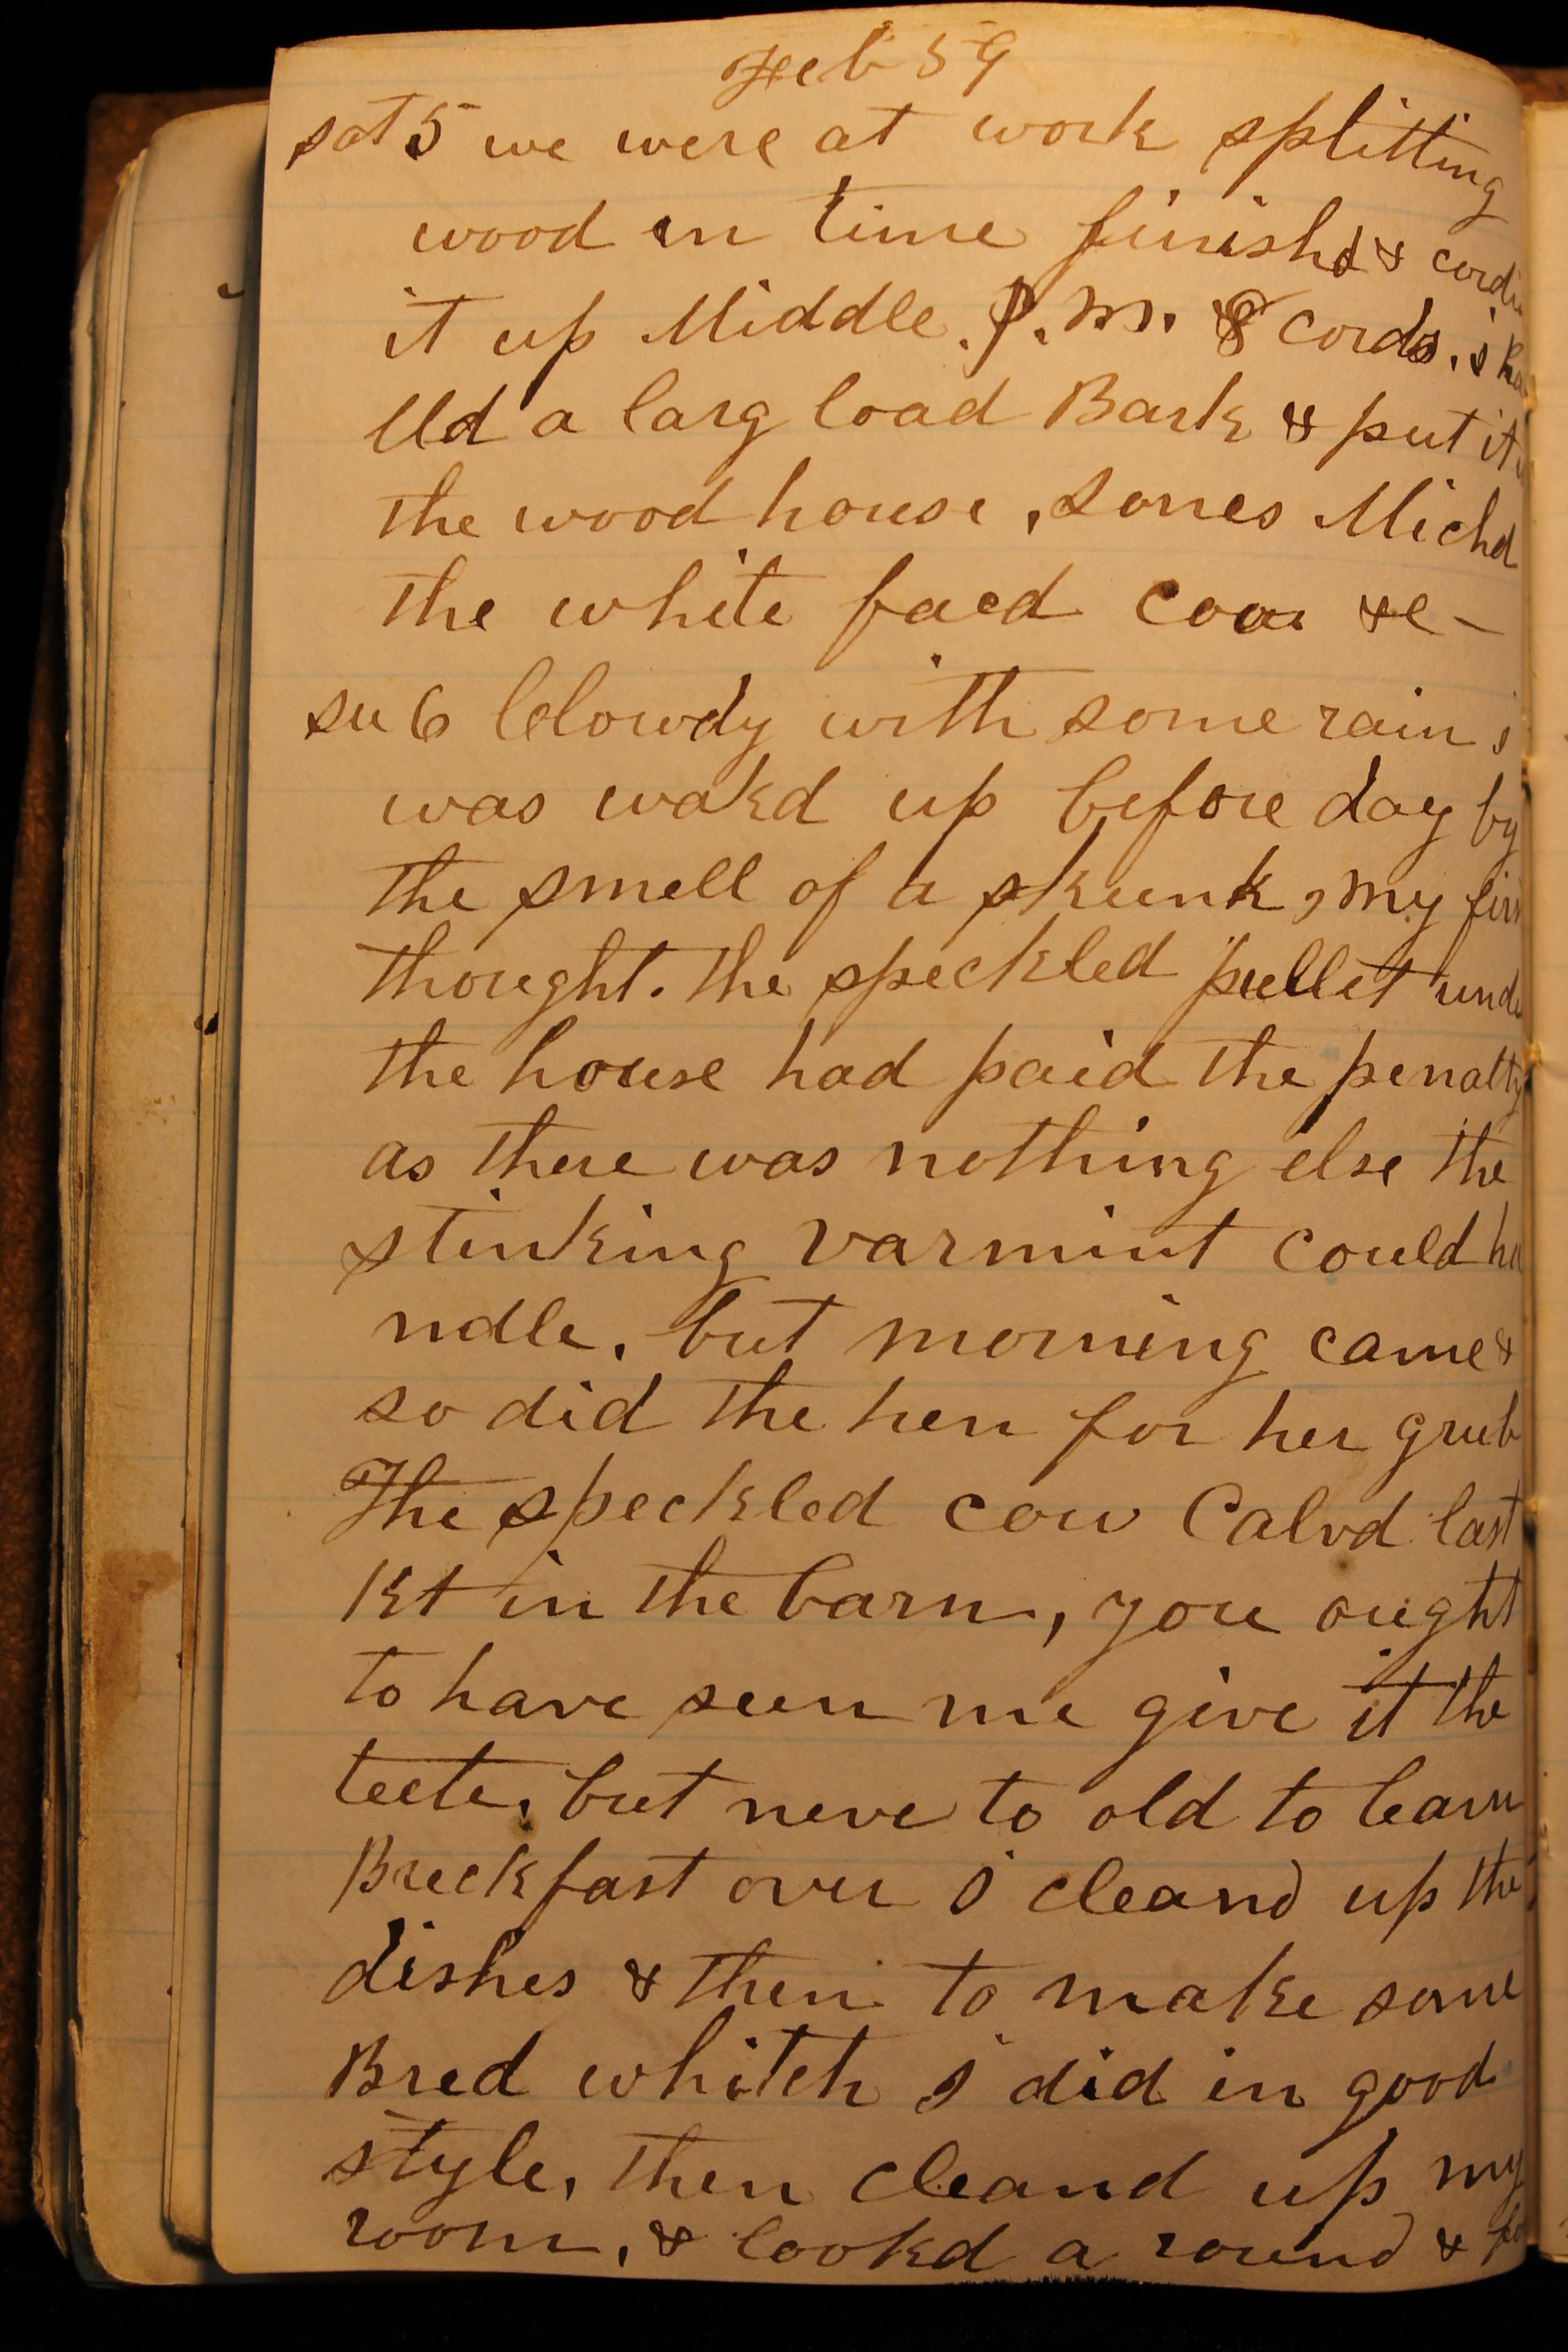 Feb 59
sat 5 we were at work splitting
wood in time finishd & cordi
it up Middle. P. M. 8 cords. i ha
lld a larg load Bark & put it
the wood house, Jones Michd
the white facd cow &c -
su 6 Clowdy with some rain i
was wakd up before day by
the smell of a skunk, my firs
thought. the speckled pullet unde
the house had paid the penalty
as there was nothing else the
stinking varmint could ha
ndle. but morning came &
so did the hen for her grub
The speckled cow Calvd last
Kt in the barn, you ought
to have seen me give it the
teete. but neve to old to learn
Breckfast over i cleand up the
dishes & then to make some
Bred whitch i did in good
style, then cleand up my
room, & lookd a round & fo